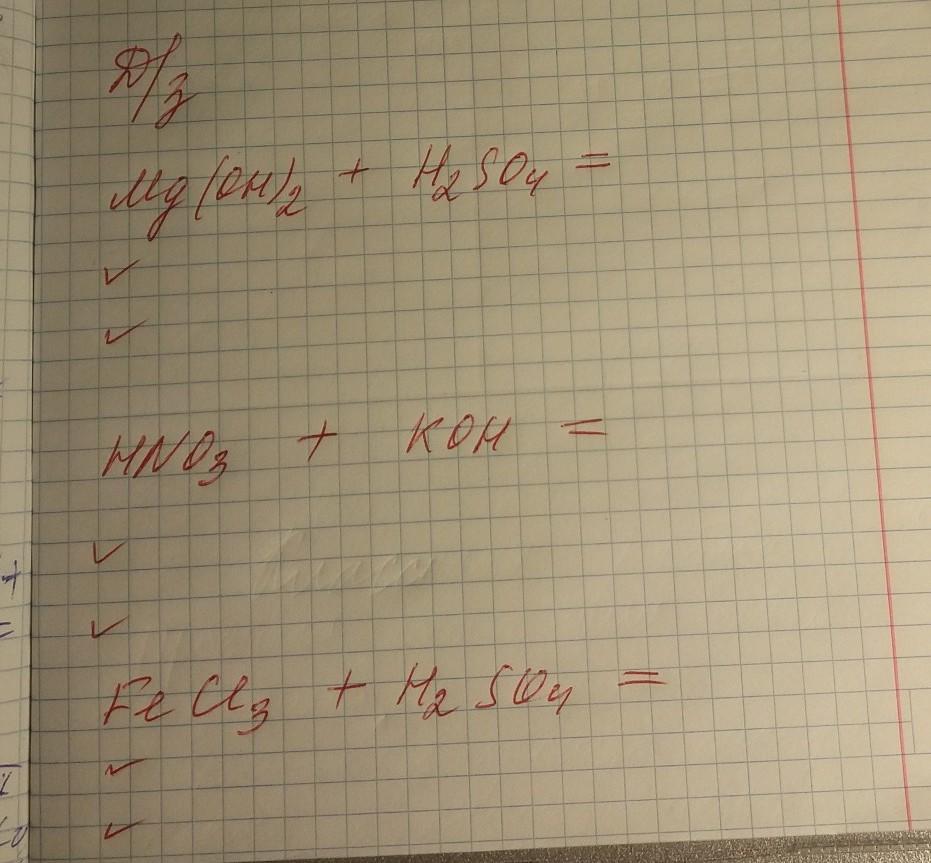 Д/з
Mg(OH)2 + H2SO4 =
✓
✓
HNO3 + KOH =
✓
✓
FeCl3 + H2SO4 =
✓
✓